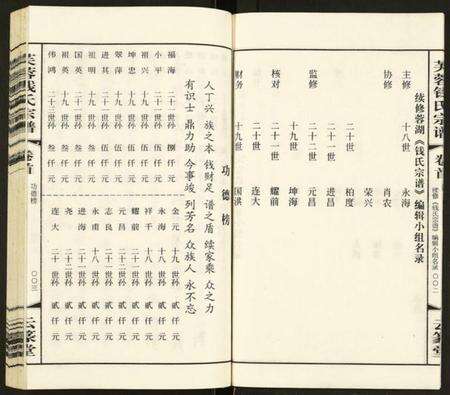 芙蓉钱氏宗谱 卷首 续修《钱氏宗谱》编辑小组名录 〇〇二 云篆堂
续修蓉湖《钱氏宗谱》编辑小组名录
主修 十八世 永海
协修 肖农
荣兴
二十世 柏度
二十一世 进昌
监修 二十世 元昌
十九世 坤海
核对 二十世 耀前
二十一世 连大
财务 十九世 国洪
功德榜
人丁兴 族之本 钱财足 谱之盾 续家乘 众之力
有识士 鼎力助 今事竣 列芳名 众族人 永不忘
福海 二十世孙 捌仟元
小平 二十世孙 伍仟元
祖兴 十九世孙 伍仟元
坤忠 十九世孙 伍仟元
翠萍 二十世孙 伍仟元
进其 二十一世孙 伍仟元
祖明 十九世孙 叁仟元
国英 十九世孙 叁仟元
祖英 十九世孙 叁仟元
伟鸿 二十三世孙 叁仟元
金元 十九世孙 贰仟元
永海 十八世孙 贰仟元
祥千 十九世孙 贰仟元
耀前 二十世孙 贰仟元
元昌 二十世孙 贰仟元
志良 二十世孙 贰仟元
永甫 十八世孙 贰仟元
进海 二十一世孙 贰仟元
尧 二十二世孙 贰仟元
连大 二十一世孙 贰仟元
芙蓉钱氏宗谱 卷首 功德榜 〇〇三 云篆堂